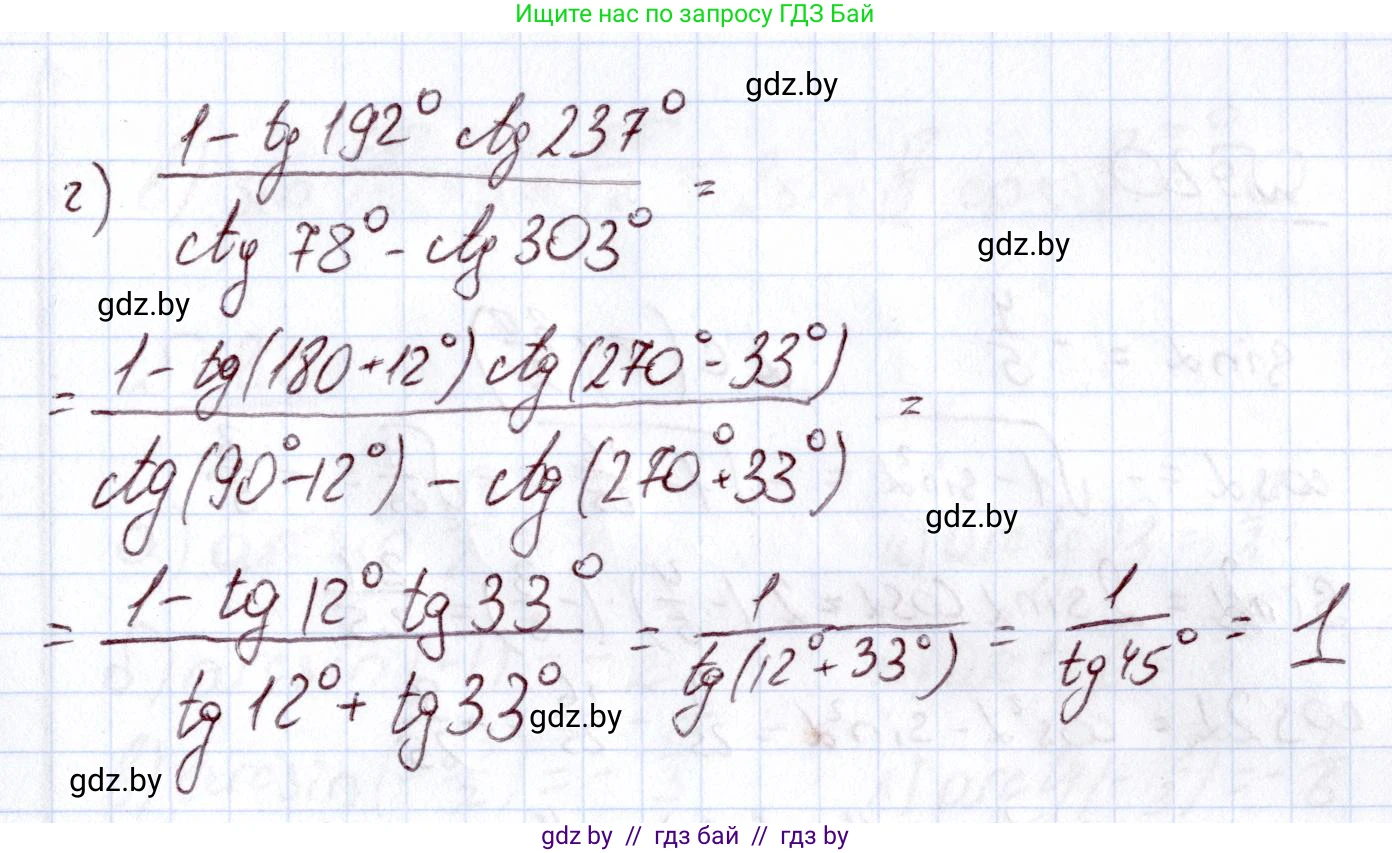 Ищите нас по запросу ГДЗ Бай
gdz.by
г) (1 - tg 192° ctg 237°) / (ctg 78° - ctg 303°) =
gdz.by
gdz.by
= (1 - tg(180 + 12°) ctg(270° - 33°)) / (ctg(90° - 12°) - ctg(270° + 33°)) =
gdz.by
= (1 - tg 12° tg 33°) / (tg 12° + tg 33°) = 1 / tg(12° + 33°) = 1 / tg 45° = 1
gdz.by
gdz.by
gdz by // гдз бай // гдз by